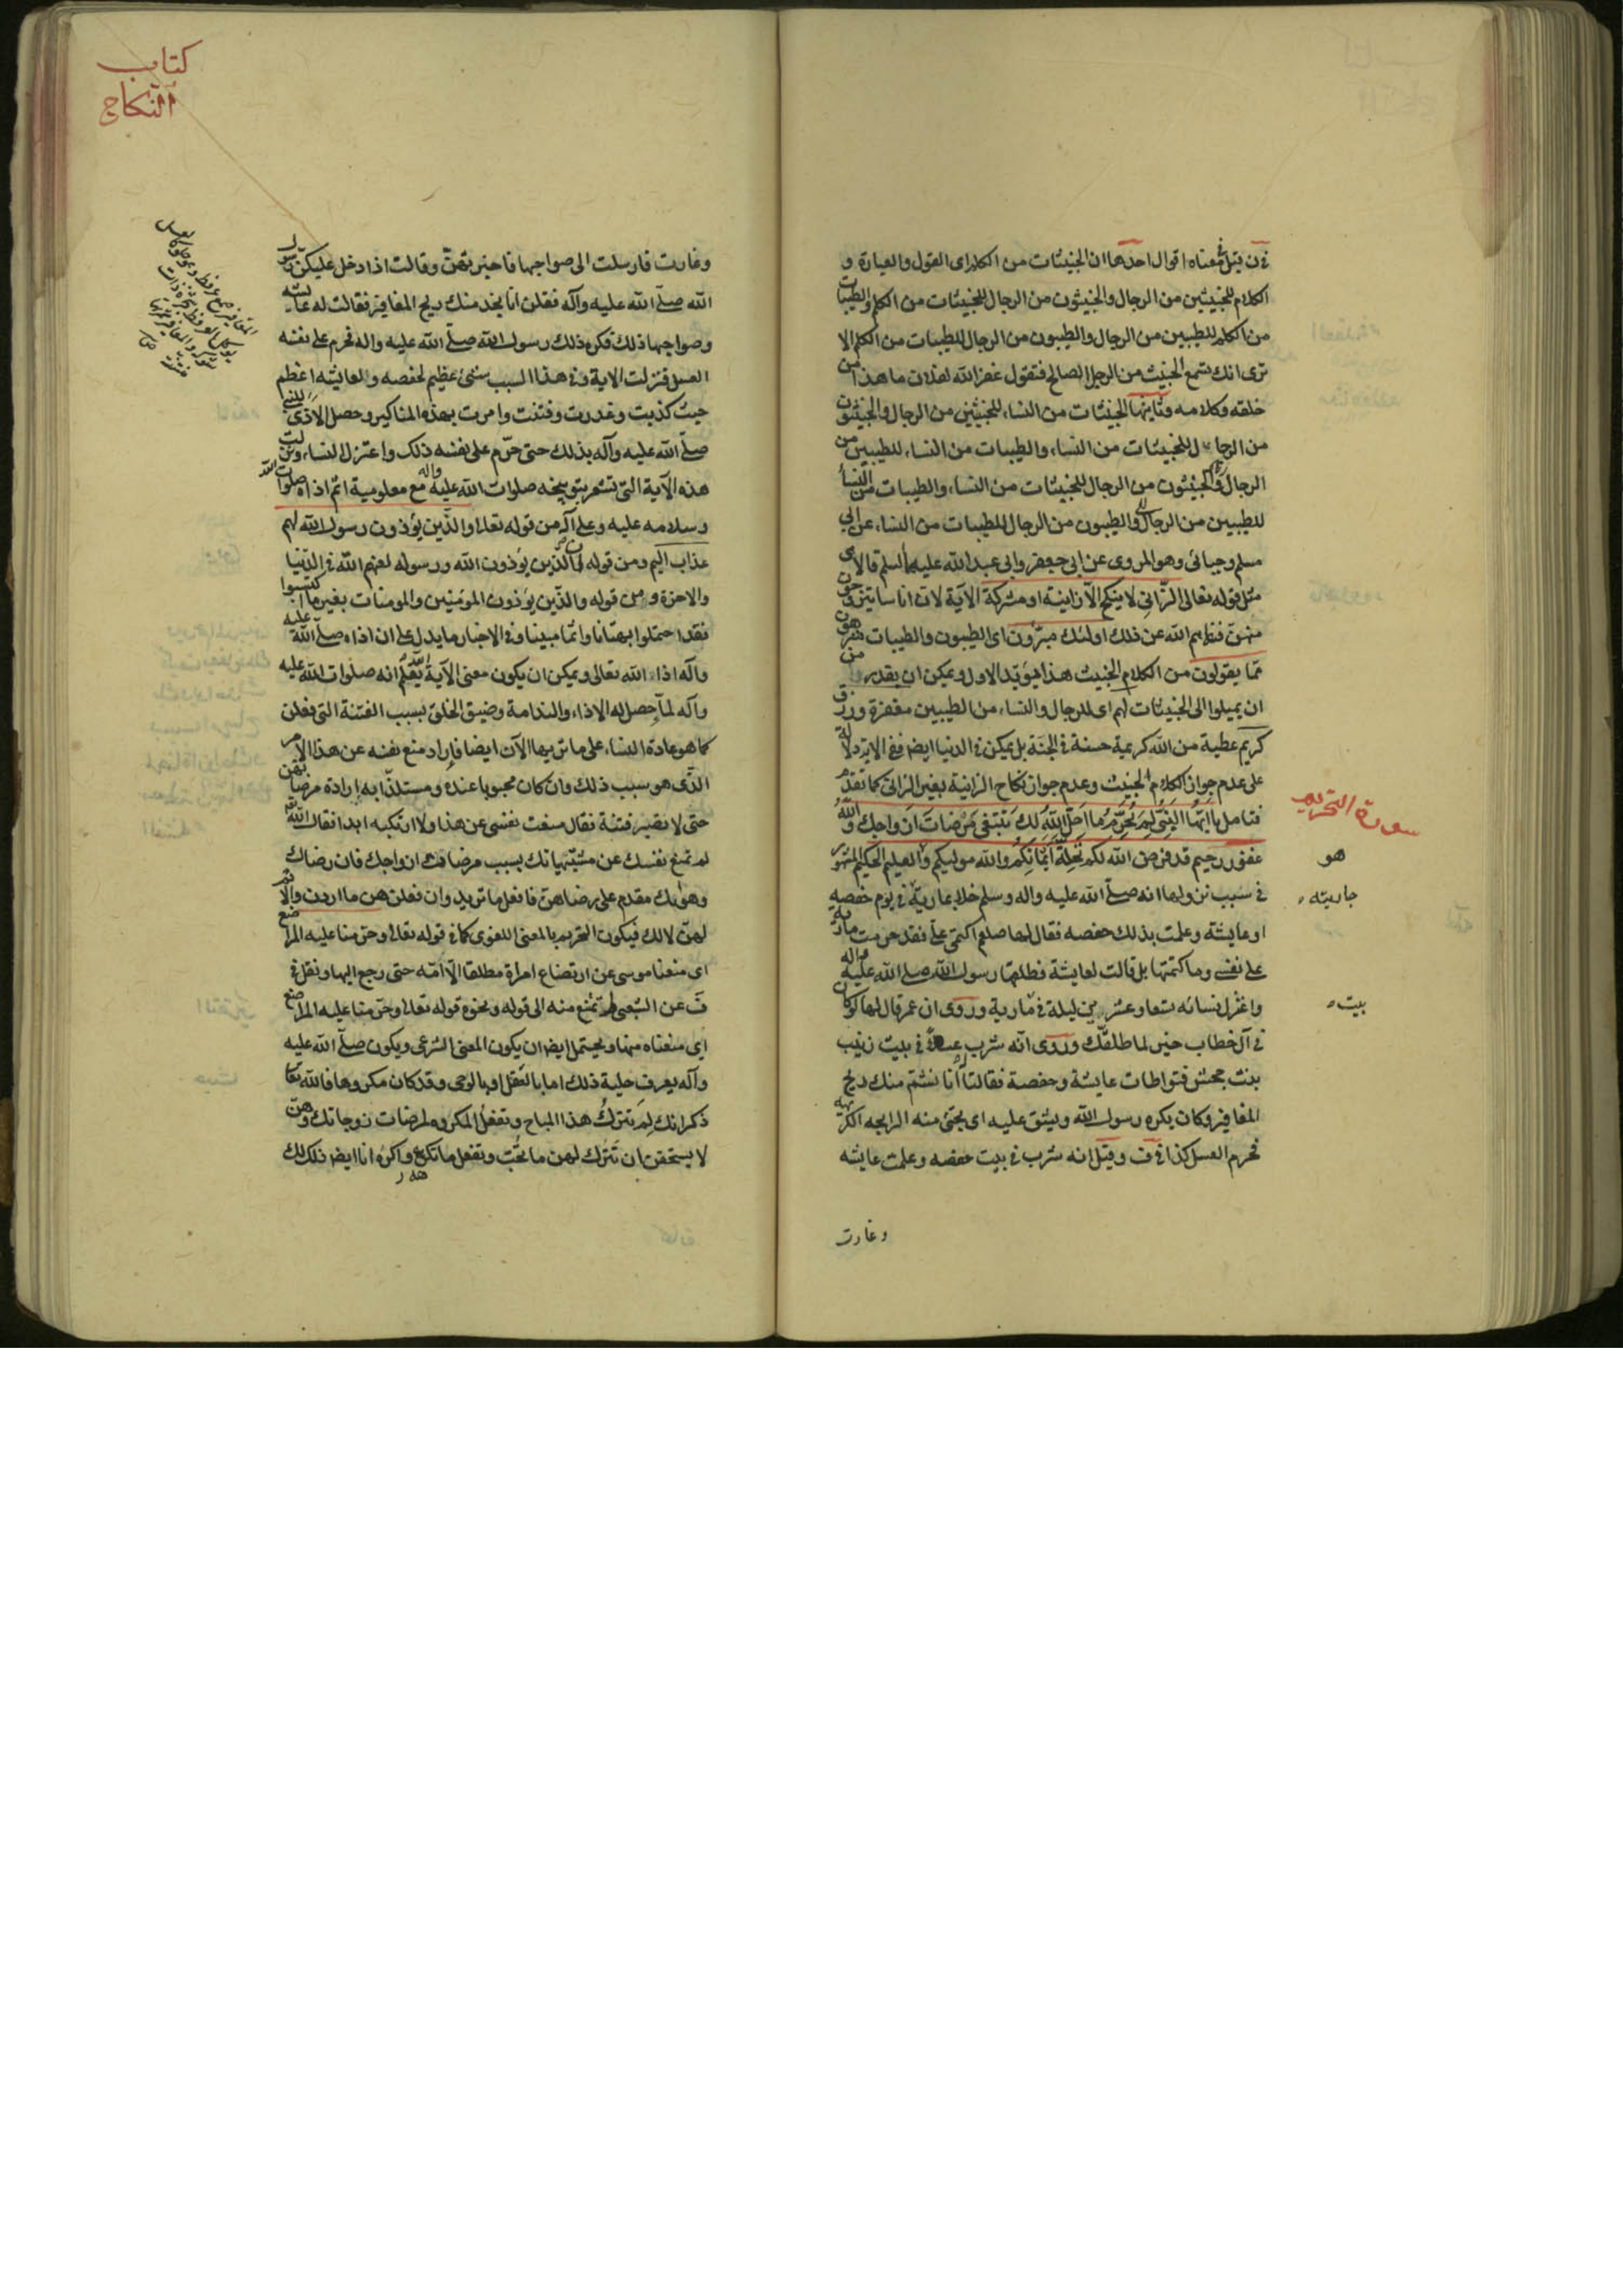 في ن قيل في معناه اقوال احدها ان الخبيثات من الكلام اى القول والعبارة و
الكلام للخبيثين من الرجال والخبيثون من الرجال للخبيثات من الكلم والطيبات
من الكلم للطيبين من الرجال والطيبون من الرجال للطيبات من الكلم الا
ترى انك تسمع الخبيث من الرجل الصالح فتقول غفر الله لفلان ما هذا من
خلقه وكلامه وثانيها الخبيثات من النساء للخبيثين من الرجال والخبيثون
من الرجال للخبيثات من النساء والطيبات من النساء للطيبين من
الرجال والخبيثون من الرجال للخبيثات من النساء والطيبات من النساء
للطيبين من الرجال والطيبون من الرجال للطيبات من النساء عن ابي
مسلم وجبائى وهو المروى عن ابى جعفر وابى عبد الله عليهما السلم قالا هى
مثل قوله تعالى الزانى لا ينكح الا زانية او مشركة الآية لان اناسا يتزوجون
منهن فنهاهم الله عن ذلك اولئك مبرؤن اى الطيبون والطيبات منزهون
مما يقولون من الكلام الخبيث هذا يؤيد الاول ويمكن ان يقدر من
ان يميلوا الى الخبيثات لهم اى للرجال والنساء من الطيبين مغفرة ورزق
كريم عطية من الله كريمة حسنة في الجنة بل يمكن في الدنيا ايضا ففى الاية دلالة
على عدم جواز الكلام الخبيث وعدم جواز نكاح الزانية بغير الزانى كما تقدم
فتامل يا ايها النبى لم تحرم ما احل الله لك تبتغى مرضات ازواجك والله
سورة التحريم
غفور رحيم قد فرض الله لكم تحلة أيمانكم والله موليكم والعليم الحكيم المشهور
هو
في سبب نزولها انه صلى الله عليه واله وسلم خلا بمارية في يوم حفصه
جاريته
او عايشة وعلمت بذلك حفصه فقال لها صلعم اكتمى على فقد حرمت مارية
على نفسى وما كتمتها بل قالت لعايشة فطلقها رسول الله صلى الله عليه واله
واعتزل نسائه تسعا وعشرين ليلة في مارية وروى ان عمر قال لها لو كان
بيت
في آل خطاب خير لما طلقك وروى انه شرب عسلا في بيت زينب
بنت جحش فتواطات عايشة وحفصة فقالتا انا نشتم منك ريح
المغافير وكان يكره رسول الله ويشق عليه اى يجئ منه الرايحه الكريهة
فحرم العسل كذا في ف وقيل انه شرب في بيت حفصه وعلمت عايشه
وغارت
كتاب
النكاح
وغارت فارسلت الى صواحبها فاخبرتهن وقالت اذا دخل عليكن رسول
الله صلى الله عليه وآله فقلن انا نجد منك ريح المغافير فقالت له عايشه
وصواحبها ذلك فكره ذلك رسول الله صلى الله عليه واله فحرم على نفسه
العسل فنزلت الاية وفى هذا السبب شئ عظيم لحفصه ولعايشه اعظم
حيث كذبت وغدرت وفتنت وامرت بهذه المناكير وحصل الاذى للنبى
صلى الله عليه وآله بذلك حتى حرم على نفسه ذلك واعتزل النساء ونزلت
هذه الآية التى تشعر بتوبيخه صلوات الله عليه واله مع معلومية اثم اذاه صلوات الله
وسلامه عليه وعلى آله من قوله تعالى والذين يؤذون رسول الله لهم
عذاب اليم ومن قوله ان الذين يؤذون الله ورسوله لعنهم الله في الدنيا
والاخرة ومن قوله والذين يؤذون المؤمنين والمؤمنات بغير ما اكتسبوا
فقد احتملوا بهتانا واثما مبينا وفى الاخبار ما يدل على ان اذاه صلى الله عليه
وآله اذاء الله تعالى ويمكن ان يكون معنى الآية انه صلوات الله عليه
وآله لما حصل له الاذاء والندامة وضيق الخلق بسبب الفتنة التى فعلن
كما هو عادة النساء على ما تريها الآن ايضا فاراد منع نفسه عن هذا الامر
الذى هو سبب ذلك وان كان محبوبا عنده ومستلذا به إرادة مرضاتهن
حتى لا تصير فتنة فقال منعت نفسى عن هذا ولا ارتكبه ابدا فقال الله
لم تمنع نفسك عن مشتهياتك بسبب مرضات ازواجك فان رضاك
وهواك مقدم على رضاهن فافعل ما تريد وان فعلن هن ما اردن والاثم
لهن لا لك فيكون التحريم بالمعنى اللغوى كما في قوله تعالى وحرمنا عليه المراضع
اى منعنا موسى عن ارتضاع امراة مطلقا الا امه حتى رجع اليها ونقل في
ف عن الشعبى تمنع منه الى قوله ونحوه قوله تعالى وحرمنا عليه المراضع
اى منعناه منها ويحتمل ايضا ان يكون المعنى الشرعى ويكون صلى الله عليه
وآله يعرف حلية ذلك اما بالعقل او بالوحى وقد كان مكروها فالله تعالى
ذكر انك لم تترك هذا المباح وتفعل المكروه لمرضات زوجاتك وهن
لا يستحقن ان تترك لهن ما تحب وتفعل ما تكره واكره انا ايضا ذلك لك